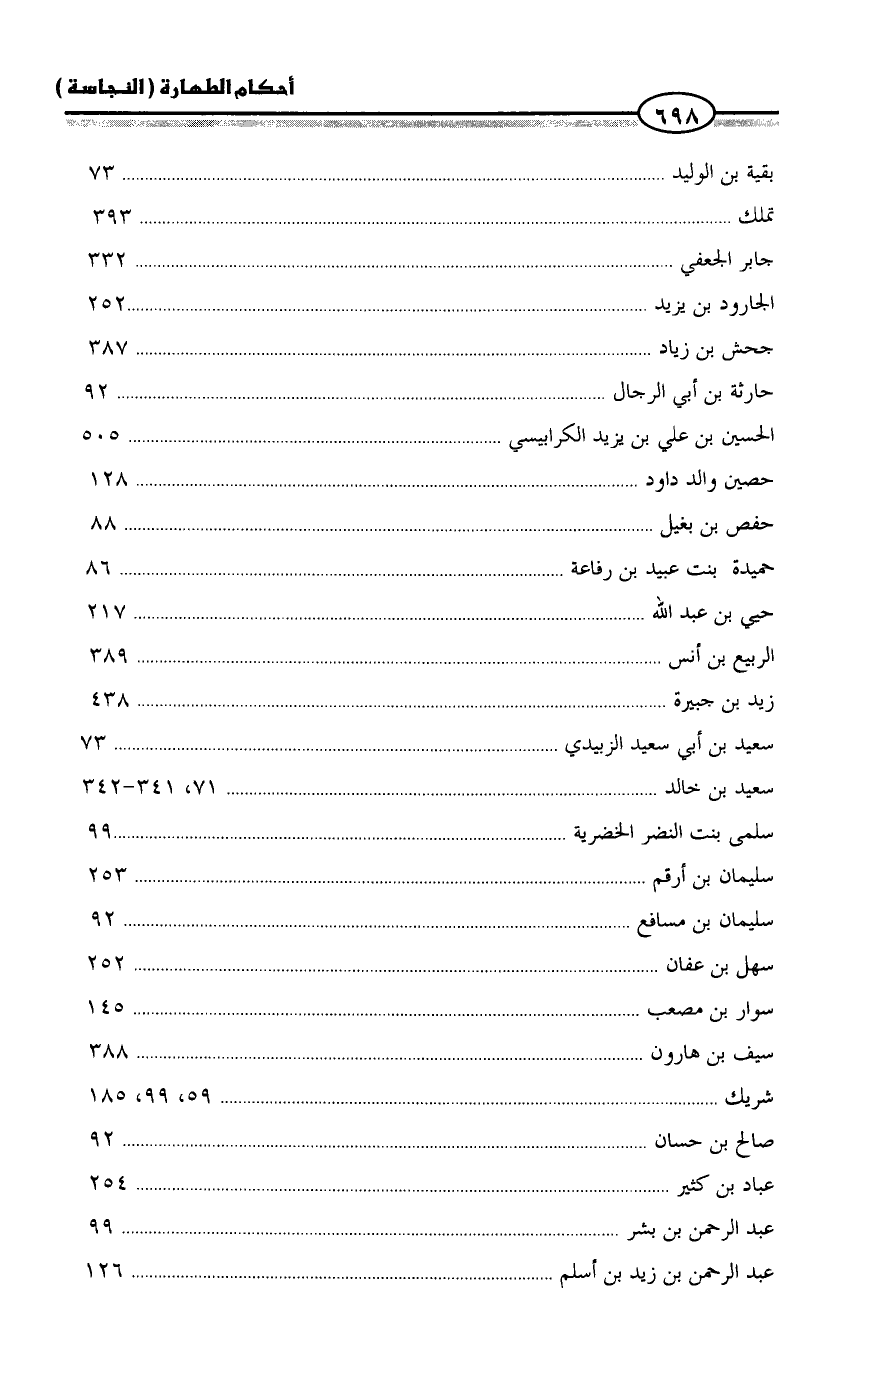 أحكام الطهارة (النجاسة)
٦٩٨
بقية بن الوليد ................ ٧٣
تملك ................ ٣٩٣
جابر الجعفي ................ ٣٣٢
الجارود بن يزيد ................ ٢٥٢
جحش بن زياد ................ ٣٨٧
حارثة بن أبي الرجال ................ ٩٢
الحسين بن علي بن يزيد الكرابيسي ................ ٥٠٥
حصين والد داود ................ ١٢٨
حفص بن بغيل ................ ٨٨
حميدة بنت عبيد بن رفاعة ................ ٨٦
حيي بن عبد الله ................ ٢١٧
الربيع بن أنس ................ ٣٨٩
زيد بن جبيرة ................ ٤٣٨
سعيد بن أبي سعيد الزبيدي ................ ٧٣
سعيد بن خالد ................ ٧١، ٣٤١-٣٤٢
سلمى بنت النضر الخضرية ................ ٩٩
سليمان بن أرقم ................ ٢٥٣
سليمان بن مسافع ................ ٩٢
سهل بن عفان ................ ٢٥٢
سوار بن مصعب ................ ١٤٥
سيف بن هارون ................ ٣٨٨
شريك ................ ٥٩، ٩٩، ١٨٥
صالح بن حسان ................ ٩٢
عباد بن كثير ................ ٢٥٤
عبد الرحمن بن بشر ................ ٩٩
عبد الرحمن بن زيد بن أسلم ................ ١٢٦